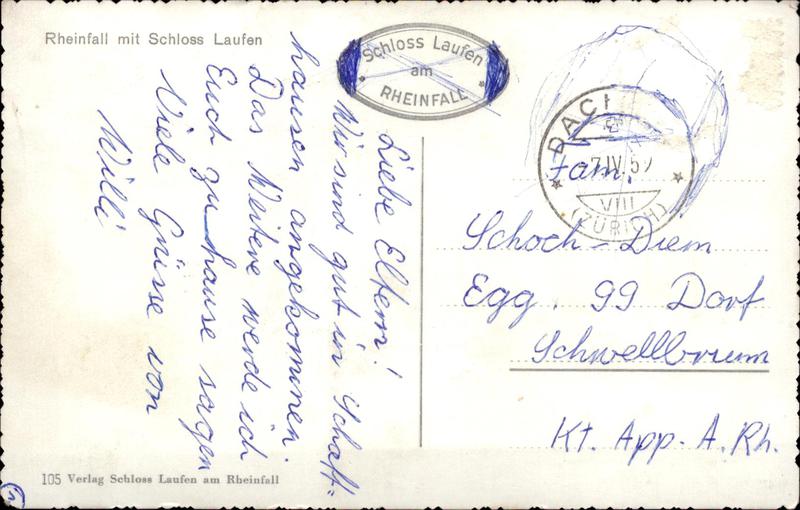 Rheinfall mit Schloss Laufen
Schloss Laufen
am
RHEINFALL
Liebe Eltern!
Wir sind gut in Schaff-
hausen angekommen.
Das Weitere werde ich
Euch zu hause sagen
Viele Grüsse von
Willi
DACH
7.IV.59
VIII
(ZÜRICH)
Fam.
Schoch-Diem
Egg. 99 Dorf
Schwellbrunn
Kt. App. A. Rh.
105 Verlag Schloss Laufen am Rheinfall